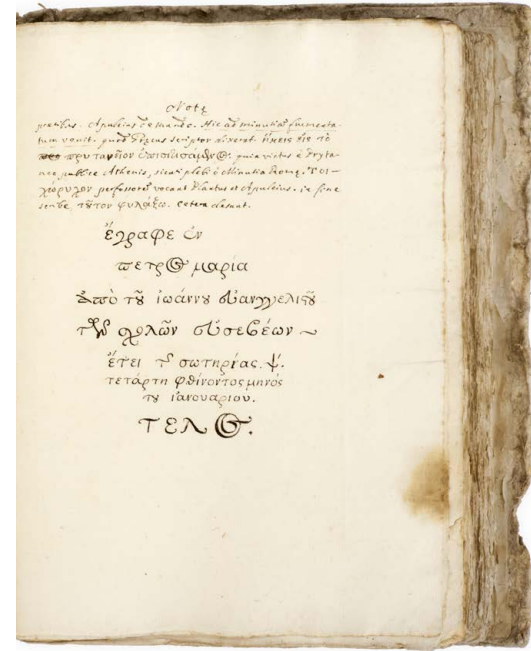 Notę
gratibus. Apuleius de mando. Hic ad minutias frumenta-
tum venit. quod scriptor dixerat. ἥκεις εἰς τὸ
πρυτανῇον. quia victus è Pryta-
neo publice Athenis, sicut plebi è Minutia Romę.
vocant Plautus et Apuleius. in fine
scribe. τȣ̂τον φυλάξω. cetera desunt.
ἔγραφε ἐν
πετρος μαρία
ἀπὸ τȣ̂ ἰωάννȣ εὐαγγελιστȣ̂
τῶν σχολῶν εὐσεβέων ~
ἔτει τῆς σωτηρίας. ψ.
τετάρτῃ φθίνοντος μηνός
τȣ ἰανουαρίου.
ΤΕΛΟΣ.